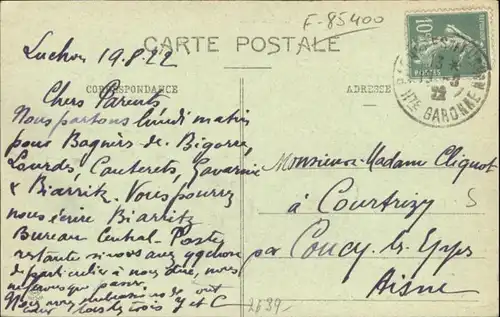 F-85400
Luchon 19.8.22
CARTE POSTALE
CORRESPONDANCE
ADRESSE
10c
POSTES
Hte GARONNE
Chers Parents
Nous partons lundi matin
pour Bagnères-de-Bigorre,
Lourdes, Cauterets, Gavarnie
& Biarritz. Vous pourrez
nous écrire Biarritz
Bureau Central-Poste
restante si vous avez qqchose
de particulier à nous dire, nous
ne ferons que passer.
Nous vous embrassons de
tous trois Y et C
Monsieur-Madame Cliquot
à Courtrizy
par Coucy-les-Eppes
Aisne
5
2639-